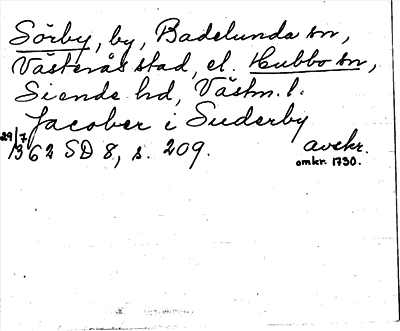 Sörby, by, Badelunda sn,
Västerås stad, el. Hubbo sn,
Siende hd, Västm. l.
Jacober i Suderby
29/7 1362 SD 8, s. 209. avskr.
omkr. 1730.